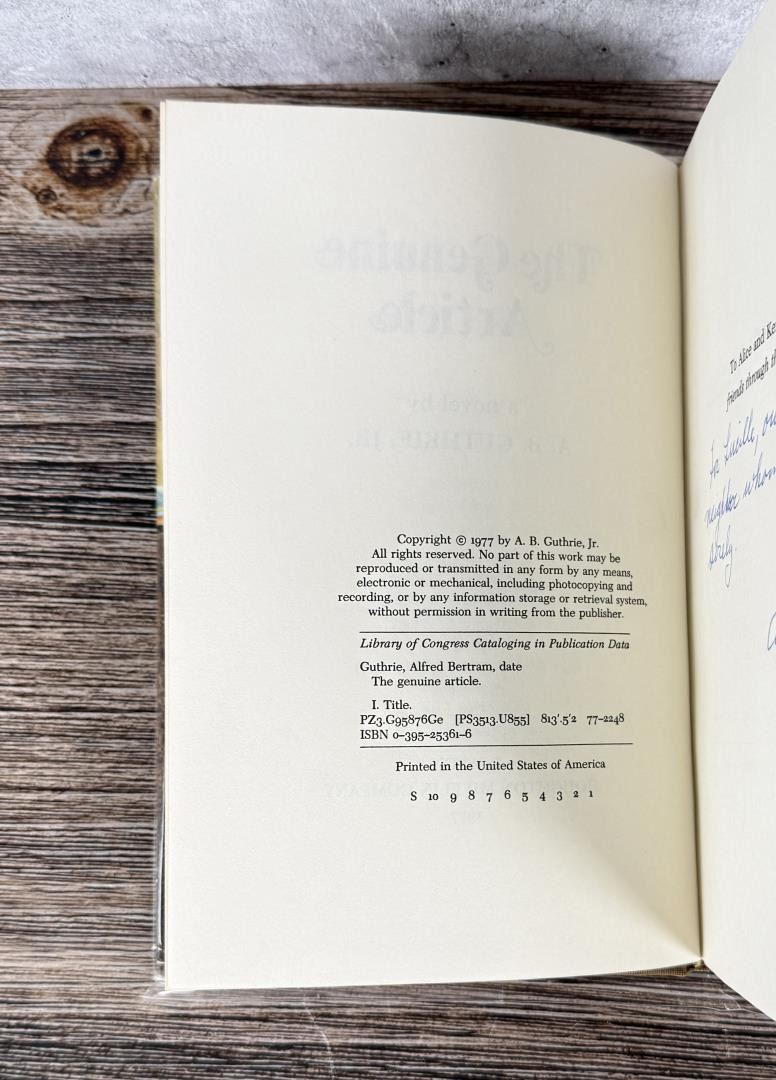 Copyright © 1977 by A. B. Guthrie, Jr.
All rights reserved. No part of this work may be
reproduced or transmitted in any form by any means,
electronic or mechanical, including photocopying and
recording, or by any information storage or retrieval system,
without permission in writing from the publisher.
Library of Congress Cataloging in Publication Data
Guthrie, Alfred Bertram, date
The genuine article.
I. Title.
PZ3.G95876Ge [PS3513.U855] 813'.5'2 77–2248
ISBN 0–395–25361–6
Printed in the United States of America
S 10 9 8 7 6 5 4 3 2 1
The Genuine
Article
a novel by
A. B. GUTHRIE, JR.
To Alice and
friends through
For Lucille,
neighbor whom